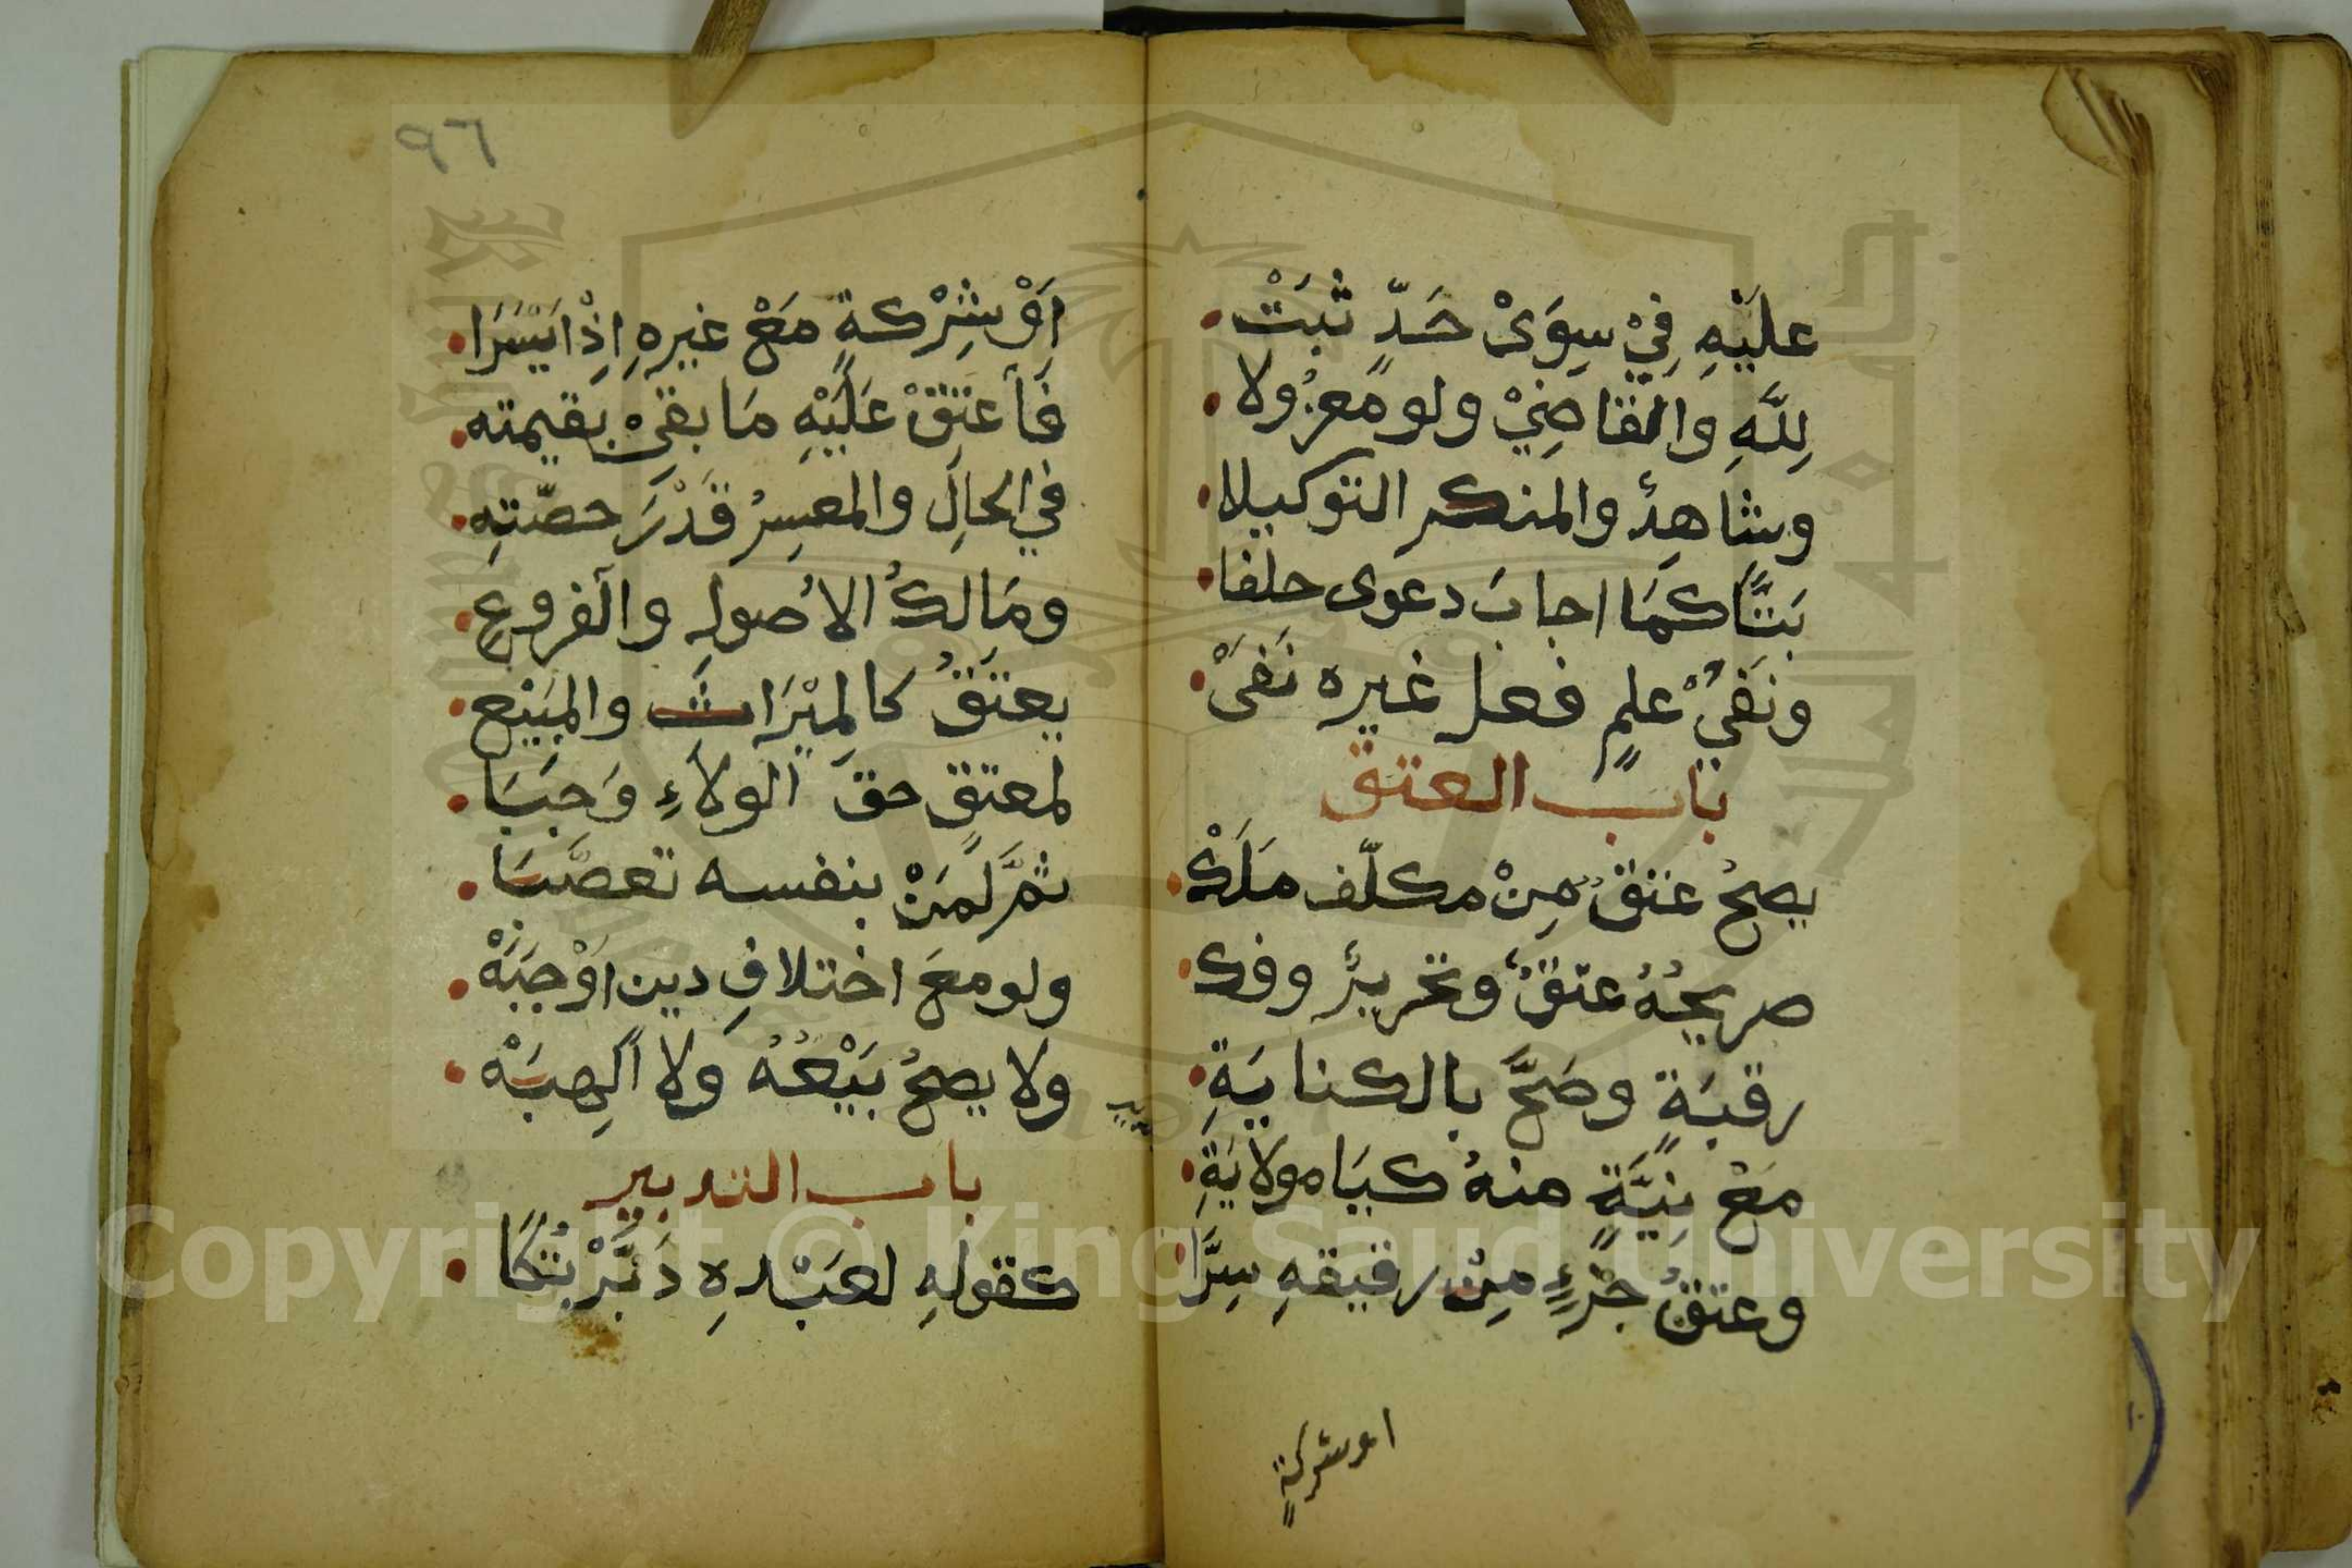 عليْهِ فِيْ سِوَىْ حَدٍّ ثَبَتْ
لِلَّهِ وَالقَاضِيْ ولو مَعزُولا
وشاهِدٌ والمنكر التوكيلا
بَتًّا كمَا اجابَ دعوى حلفا
ونَفيُْ علمٍ فعل غيره نَفَىْ
باب العتق
يصحُ عتقٌ مِنْ مكلّف مَلَكْ
صريحُهُ عتقٌ وتحريرٌ وفك
رقبَةٍ وصَحَّ بالكنايَةِ
مَعْ نِيَّةٍ منهُ كيَا مولايَةِ
وعتقُ جزْءٍ مِنْ رقيقهِ سِرًّا
اوشركةٍ
٩٦
اَوْ شِرْكةٍ مَعْ غيرهِ اِذْ ايْسَرَا
فأعتِقْ عَلَيْهِ مَا بقىْ بقيمته
في الحالِ والمعسِرُ قَدْرَ حصّتهِ
ومَالكُ الأُصولِ والفروعِ
يعتَقُ كالمِيْرَاثِ والمبَيْع
لمعتقٍ حق الولاَءِ وَجَبَا
ثمَّ لمَنْ بنفسه تعصَّبَا
ولو معَ اختلافِ دين اوْجَبَهْ
ولا يصحُ بَيْعُهُ ولا الهِبَهْ
باب التدبير
كقولهِ لعَبْدهِ دَبَّرْتُكَا
Copyright © King Saud University